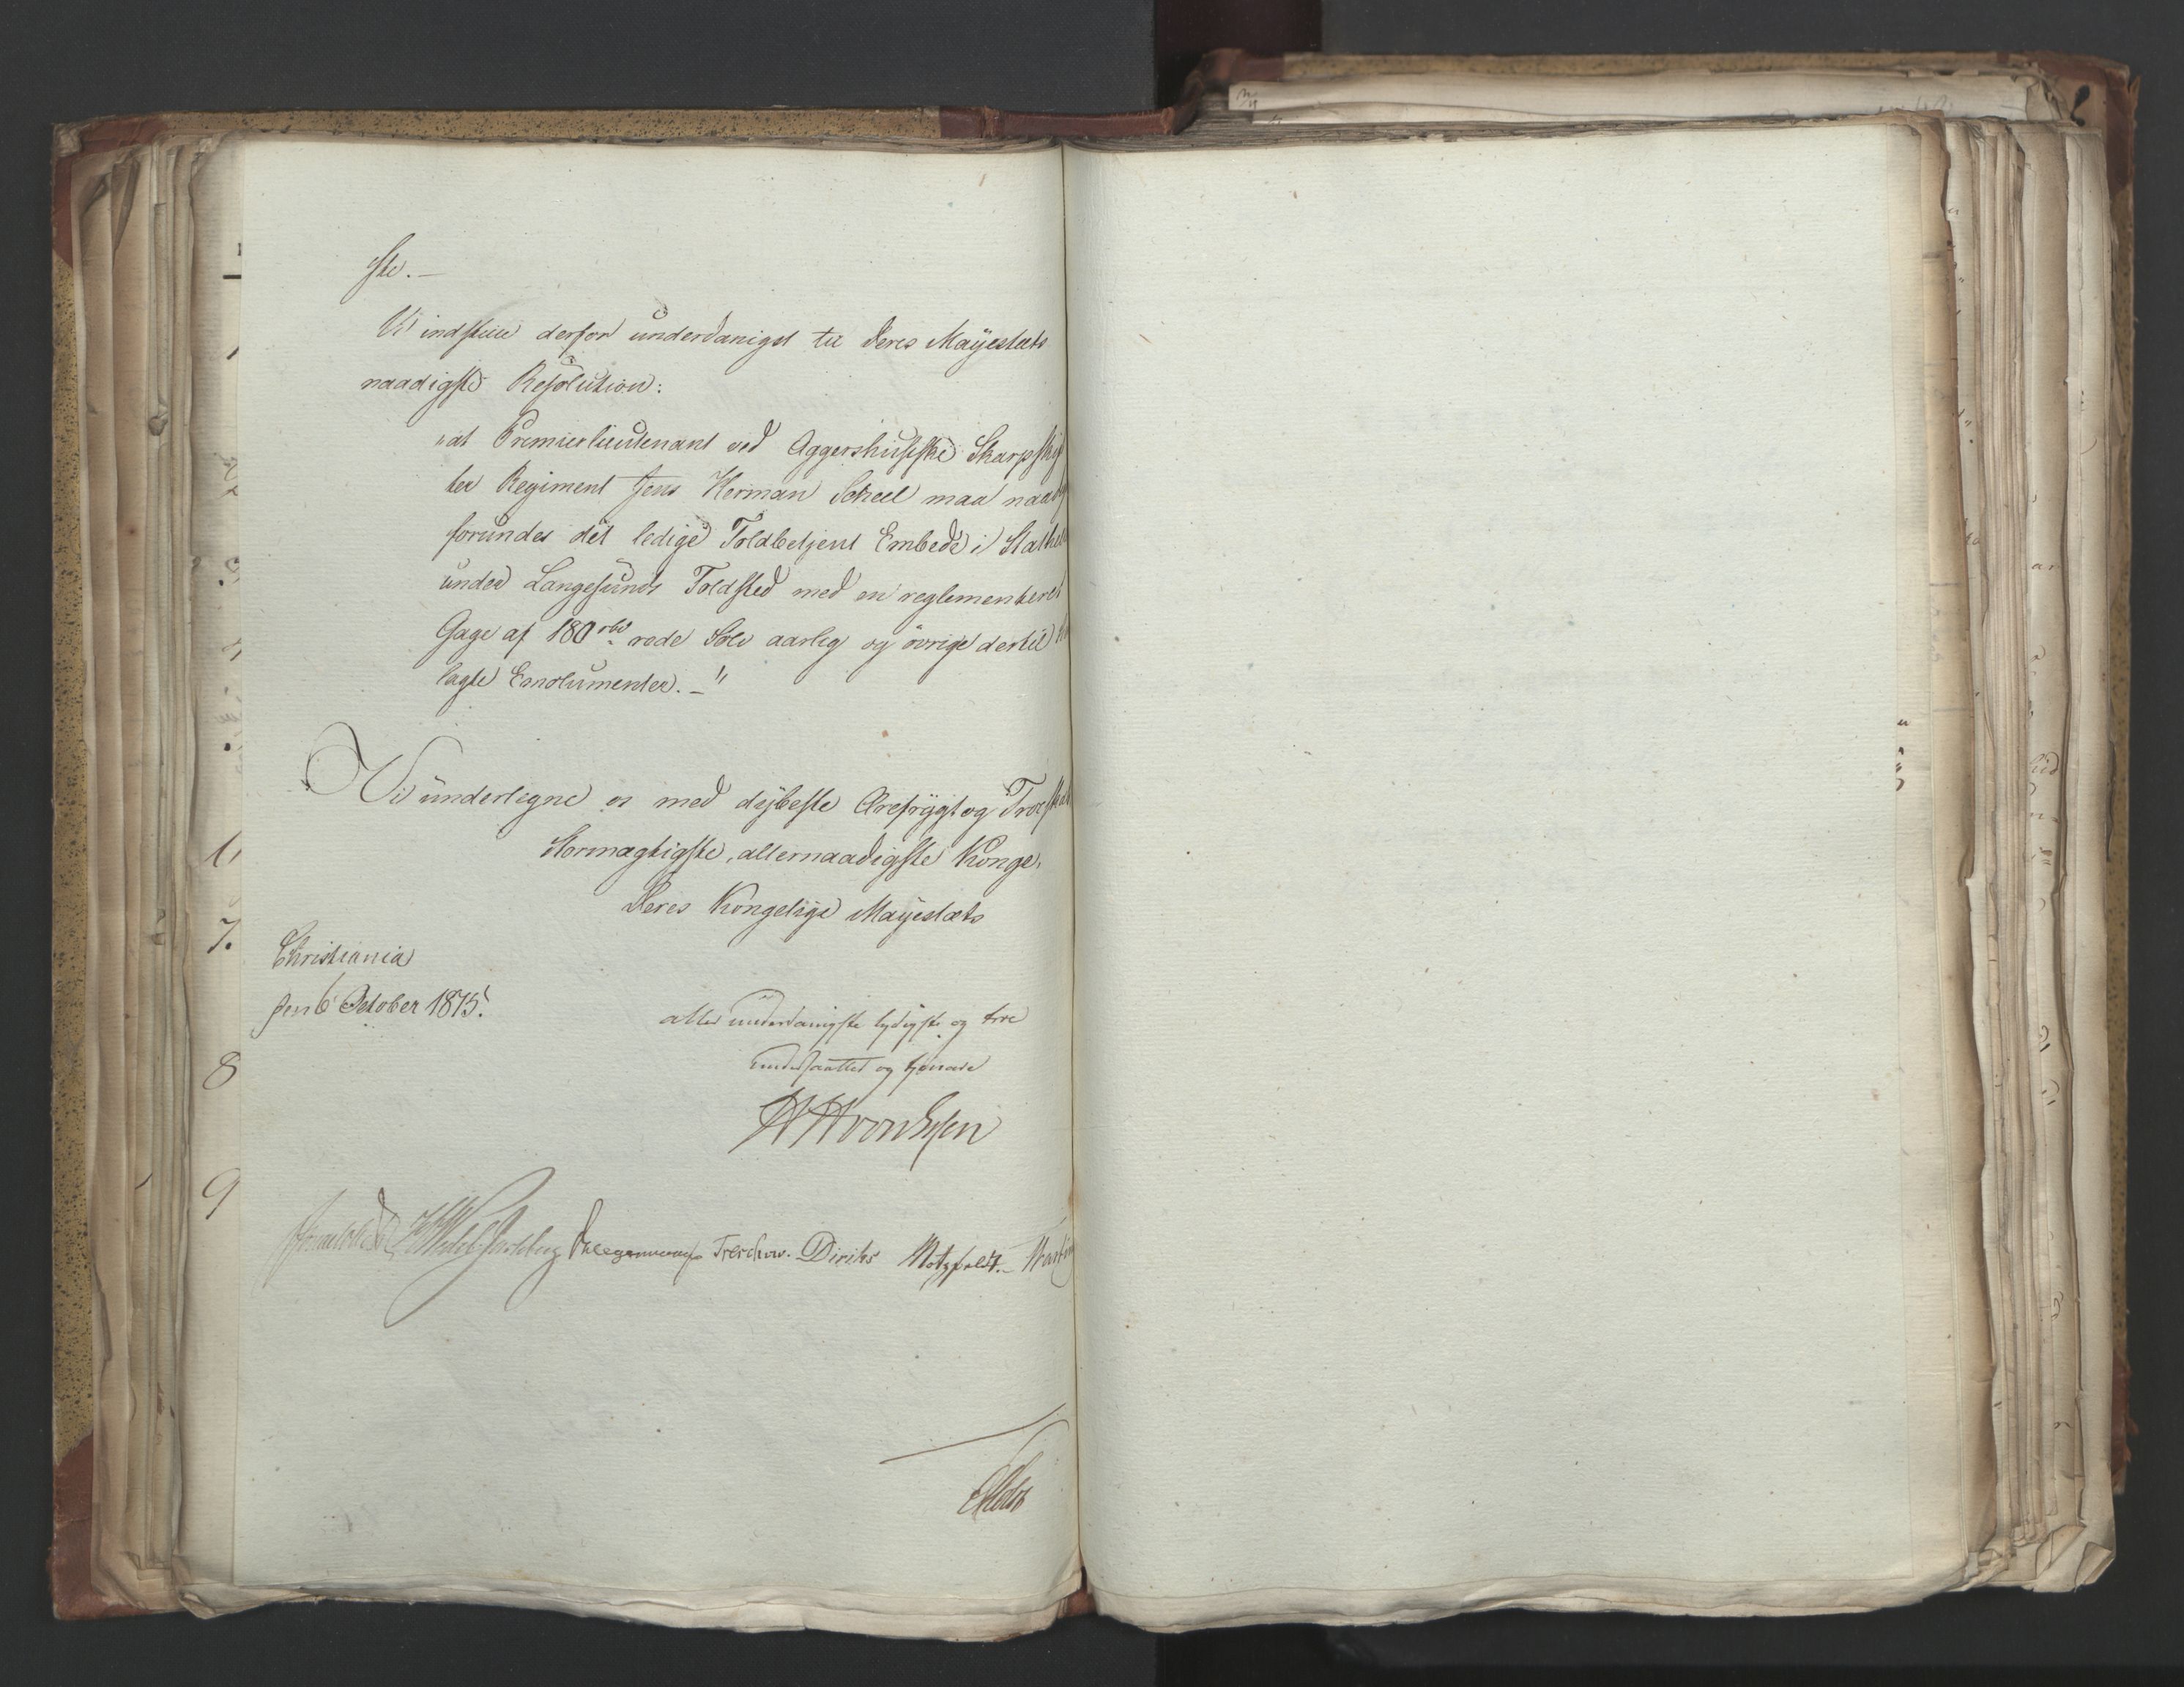 ste. —
Vi indstille derfor underdanigst til Deres Mayestæts
naadigste Resolution:
"at Premierlieutenant ved Aggershusiske Skarpsky
ter Regiment Jens Herman Scheel maa naad
forundes det ledige Toldbetjent Embede i Stathel
under Langesunds Toldsted med en reglementeret
Gage af 180 rbd rede Sølv aarlig og øvrige dertil
lagte Emolumenter. —"
Vi undertegne os med dybeste Ærefrygt og Troeska
Stormægtigste, allernaadigste Konge,
Deres Kongelige Mayestæts
Christiania
den 6 October 1815.
aller underdanigste lydigste og troe
undersaatter og tjenere
HHvonEssen
HWedel Jarlsberg
Treschow. Diriks Motzfeldt. —
1,
7.
8
9